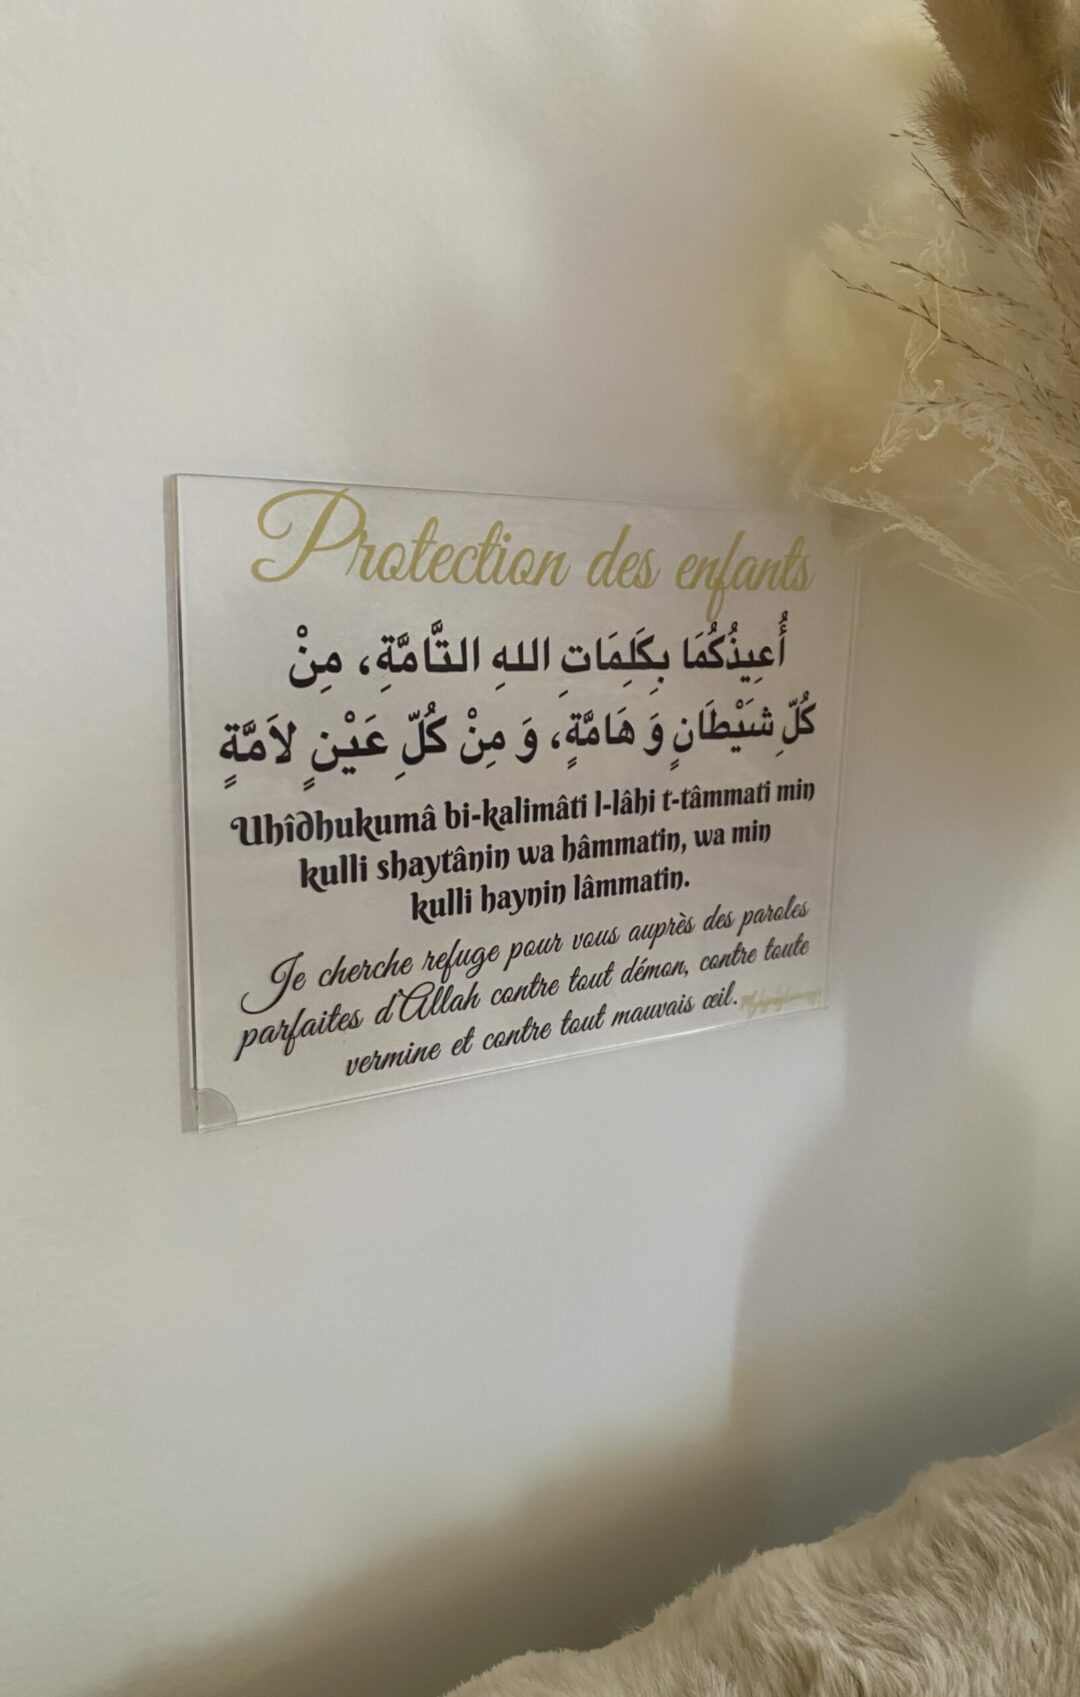 Protection des enfants
أُعِيذُكُمَا بِكَلِمَاتِ اللهِ التَّامَّةِ، مِنْ
كُلِّ شَيْطَانٍ وَ هَامَّةٍ، وَ مِنْ كُلِّ عَيْنٍ لاَمَّةٍ
Uhîdhukumâ bi-kalimâti l-lâhi t-tâmmati min
kulli shaytânin wa hâmmatin, wa min
kulli haynin lâmmatin.
Je cherche refuge pour vous auprès des paroles
parfaites d'Allah contre tout démon, contre toute
vermine et contre tout mauvais œil.